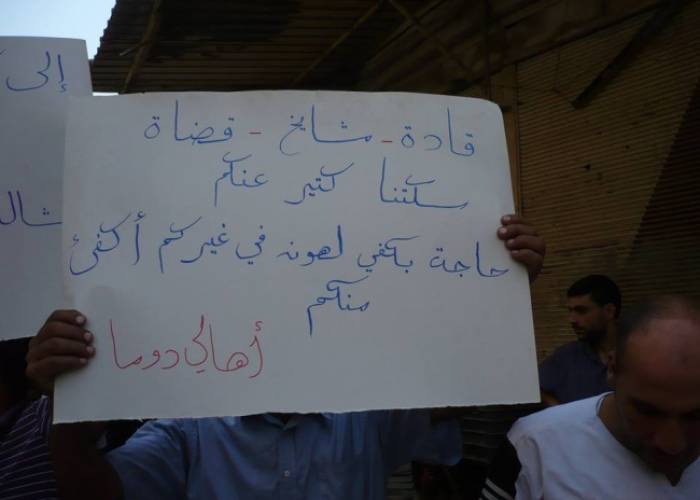 قادة - مشايخ - قضاة
سكتنا كتير عنكم
حاجة بكفي لهونه في غيركم أكفئ
منكم
أهالي دوما
إلى